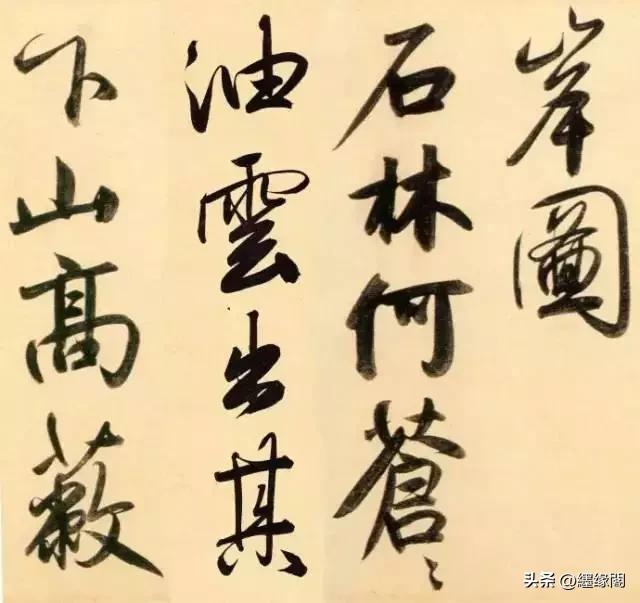 岸圖
石林何蒼〻
油雲出其
下山高蔽
头条 @纒缘閣